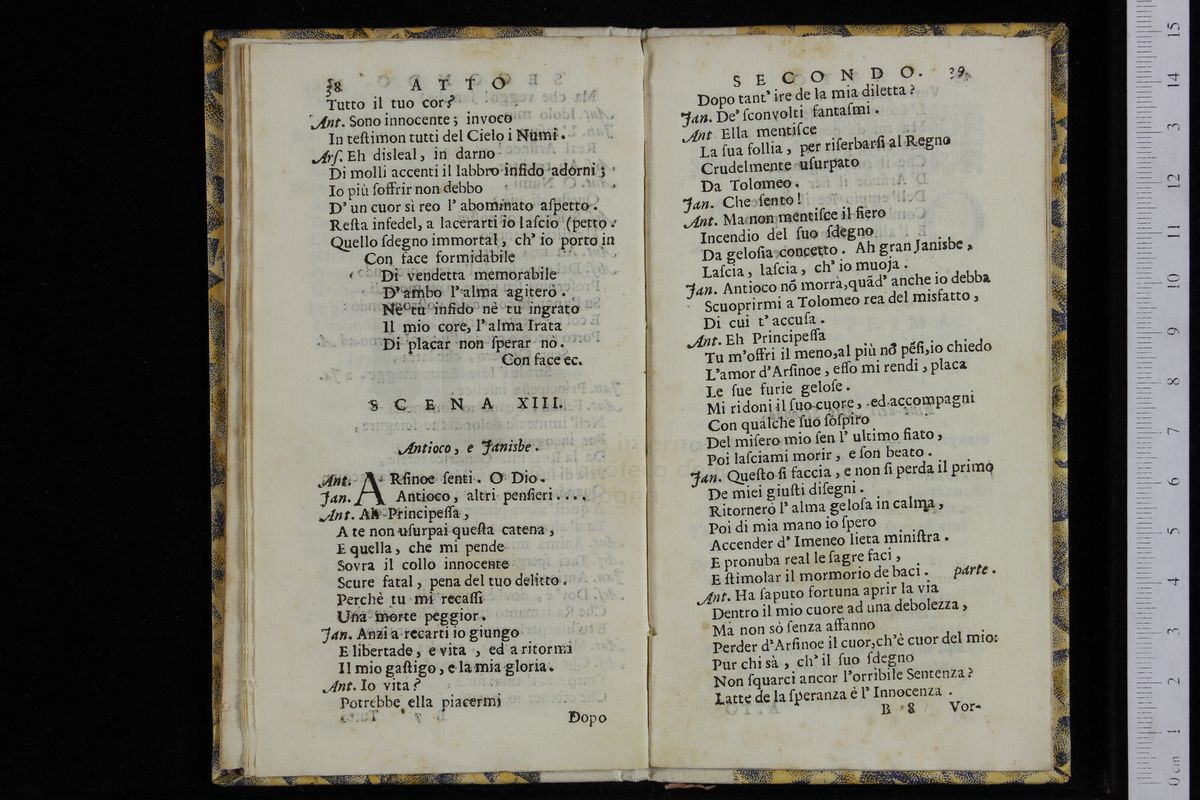 38 ATTO
Tutto il tuo cor?
Ant. Sono innocente; invoco
In teſtimon tutti del Cielo i Numi.
Arſ. Eh disleal, in darno
Di molli accenti il labbro infido adorni;
Io più ſoffrir non debbo
D' un cuor sì reo l' abominato aſpetto.
Reſta infedel, a lacerarti io laſcio (petto.
Quello ſdegno immortal, ch' io porto in
Con face formidabile
Di vendetta memorabile
D'ambo l'alma agiterò.
Nè tu infido nè tu ingrato
Il mio core, l'alma Irata
Di placar non ſperar nò.
Con face ec.
SCENA XIII.
Antioco, e Janisbe.
Ant. ARſinoe ſenti. O Dio.
Jan. Antioco, altri penſieri....
Ant. Ah Principeſſa,
A te non uſurpai queſta catena,
E quella, che mi pende
Sovra il collo innocente
Scure fatal, pena del tuo delitto.
Perchè tu mi recaſſi
Una morte peggior.
Jan. Anzi a recarti io giungo
E libertade, e vita, ed a ritormi
Il mio gaſtigo, e la mia gloria.
Ant. Io vita?
Potrebbe ella piacermi
Dopo
SECONDO. 39
Dopo tant' ire de la mia diletta?
Jan. De' ſconvolti fantaſmi.
Ant Ella mentiſce
La ſua follia, per riſerbarſi al Regno
Crudelmente uſurpato
Da Tolomeo.
Jan. Che ſento!
Ant. Ma non mentiſce il fiero
Incendio del ſuo ſdegno
Da geloſia concetto. Ah gran Janisbe,
Laſcia, laſcia, ch' io muoja.
Jan. Antioco nõ morrà, quãd' anche io debba
Scuoprirmi a Tolomeo rea del misfatto,
Di cui t' accuſa.
Ant. Eh Principeſſa
Tu m'offri il meno, al più nõ pẽſi, io chiedo
L'amor d'Arſinoe, eſſo mi rendi, placa
Le ſue furie geloſe.
Mi ridoni il ſuo cuore, ed accompagni
Con qualche ſuo ſoſpiro
Del miſero mio ſen l' ultimo fiato,
Poi laſciami morir, e ſon beato.
Jan. Queſto ſi faccia, e non ſi perda il primo
De miei giuſti diſegni.
Ritornerò l' alma geloſa in calma,
Poi di mia mano io ſpero
Accender d' Imeneo lieta miniſtra.
E pronuba real le ſagre faci,
E ſtimolar il mormorio de baci. parte.
Ant. Ha ſaputo fortuna aprir la via
Dentro il mio cuore ad una debolezza,
Mà non sò ſenza affanno
Perder d'Arſinoe il cuor, ch'è cuor del mio:
Pur chi sà, ch' il ſuo ſdegno
Non ſquarci ancor l'orribile Sentenza?
Latte de la ſperanza è l' Innocenza.
B 8 Vor-